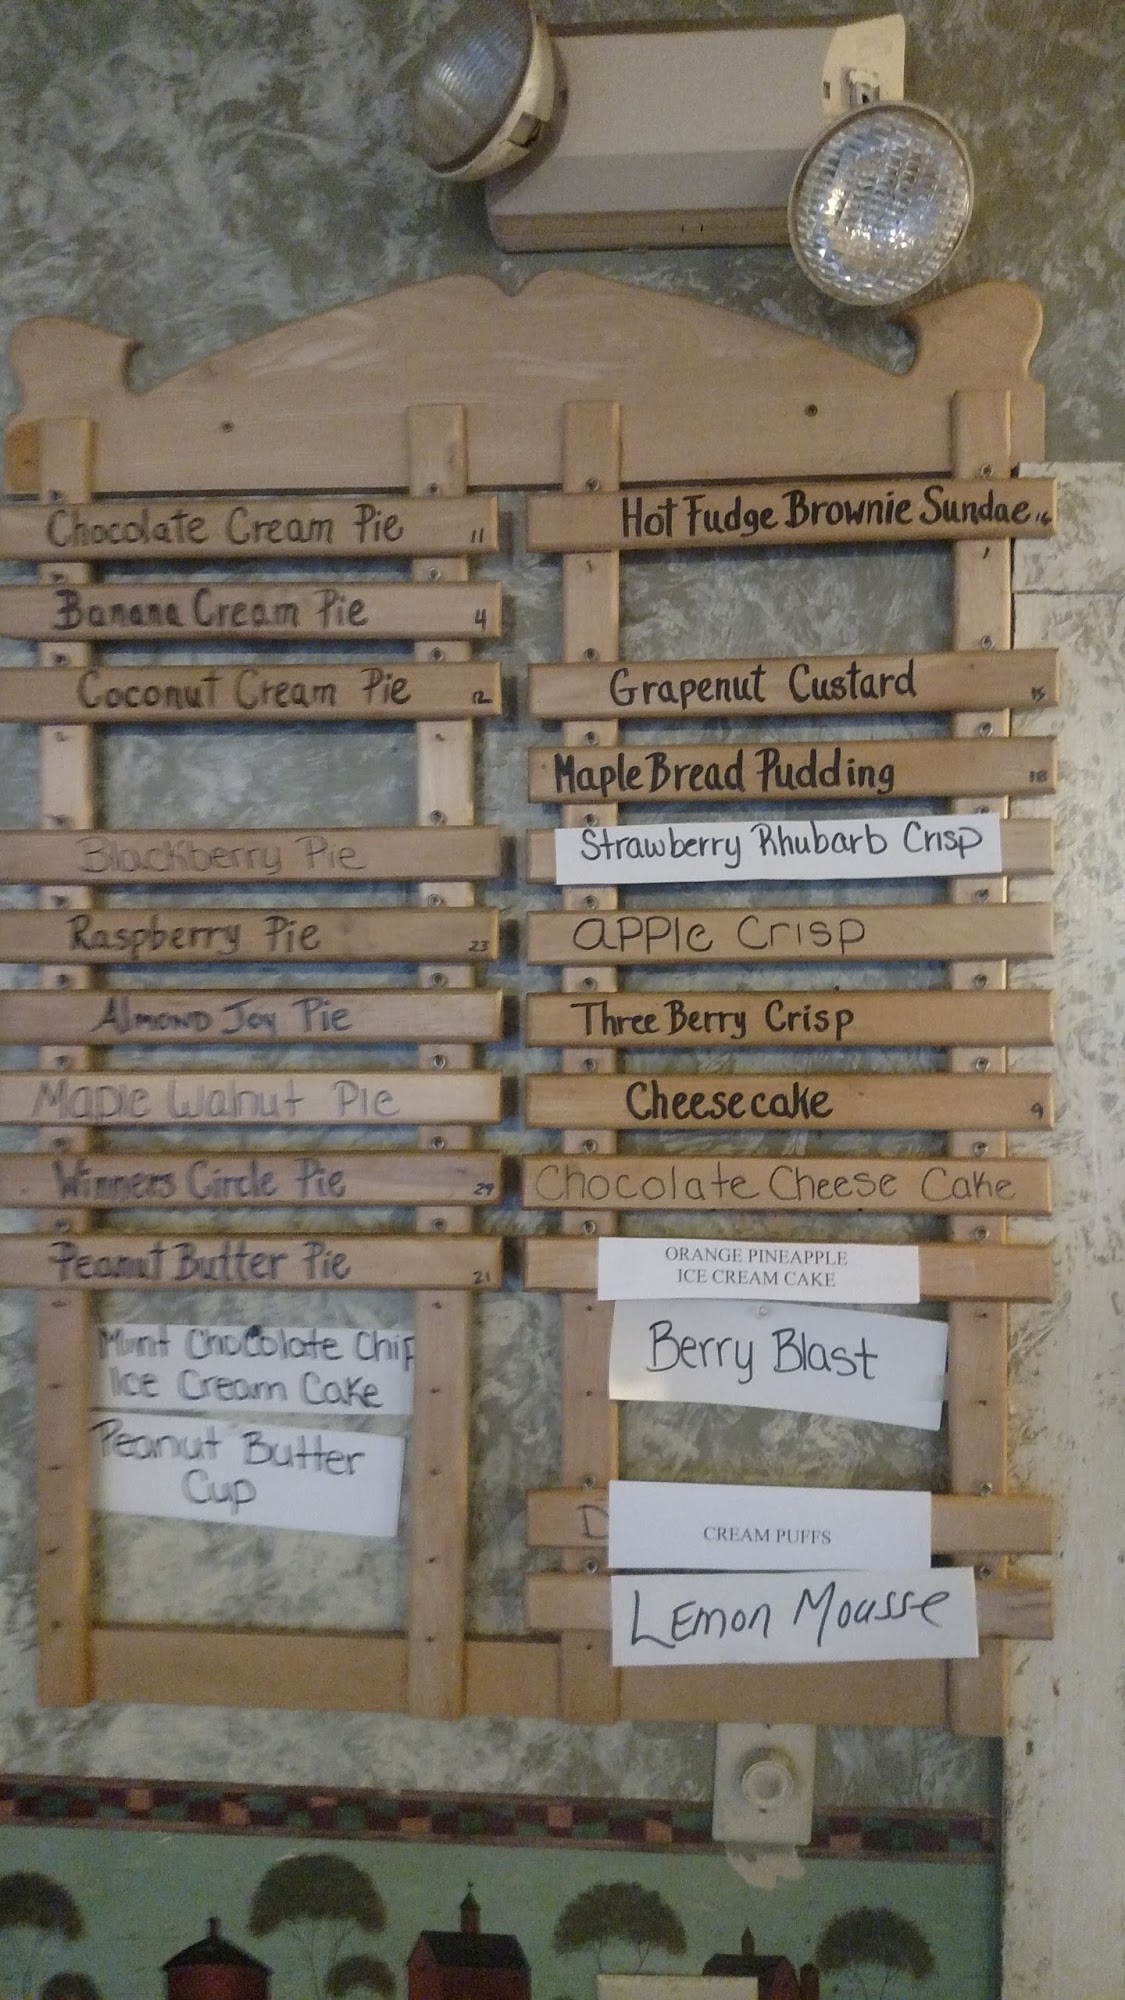 Chocolate Cream Pie 11
Banana Cream Pie 4
Coconut Cream Pie 12
Blackberry Pie
Raspberry Pie 23
Almond Joy Pie
Maple Walnut Pie
Winners Circle Pie 29
Peanut Butter Pie 21
Mint Chocolate Chip
Ice Cream Cake
Peanut Butter
Cup
Hot Fudge Brownie Sundae 16
Grapenut Custard 15
Maple Bread Pudding 18
Strawberry Rhubarb Crisp
APPle Crisp
Three Berry Crisp
Cheesecake 9
Chocolate Cheese Cake
ORANGE PINEAPPLE
ICE CREAM CAKE
Berry Blast
D
CREAM PUFFS
Lemon Mousse